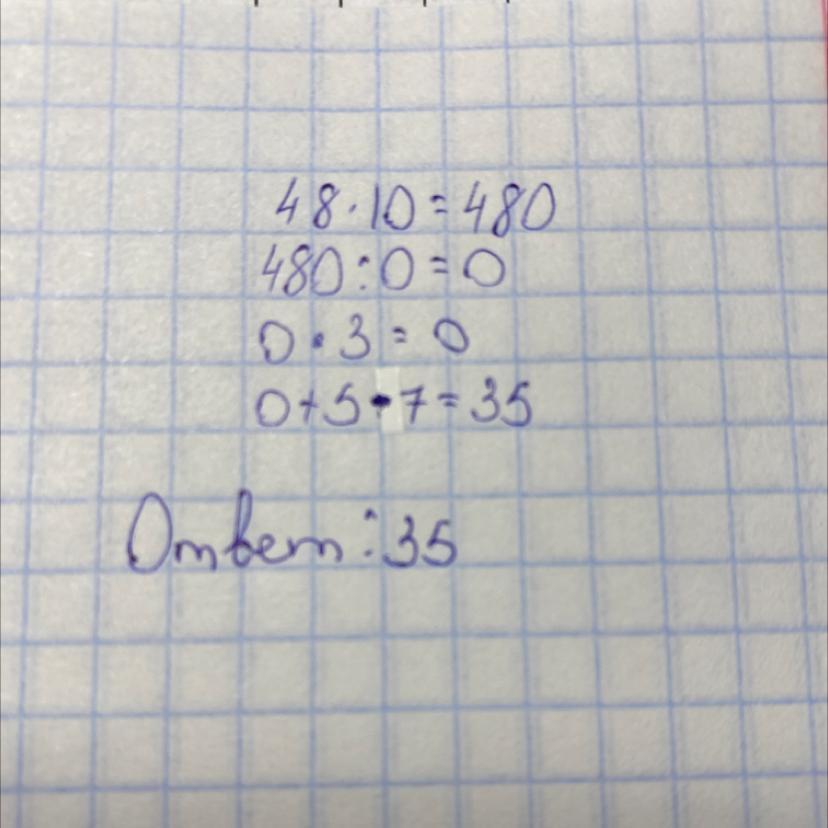 48·10=480
480:0=0
0·3=0
0+5·7=35
Ответ:35